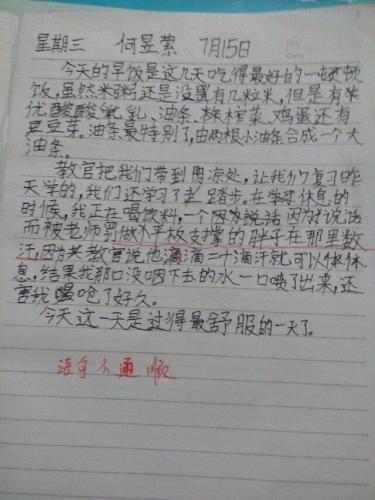 星期三 何昱萦 7月15日
今天的早饭是这几天吃得最好的一顿顿
饭,虽然米粥还是没蛋有几粒米,但是有
优酸酸氧乳、油条、榨菜、鸡蛋还有
豆芽。油条最特别了,由两根小油条合成一个大
油条。
教官把我们带到阴凉处,让我们复习昨
天学的,我们还学习了踏步。在学休息的
时候,我正在喝饮料,一个因为说话因为打说话
而被老师罚做平板支撑的胖子在那里数
汗,因为教官说他滴满二十滴汗就可以休休
息,结果我那口没咽下去的水一口喷了出来,还
害我喝呛了好久。
今天这一天是过得最舒服的一天了。
语句不通顺